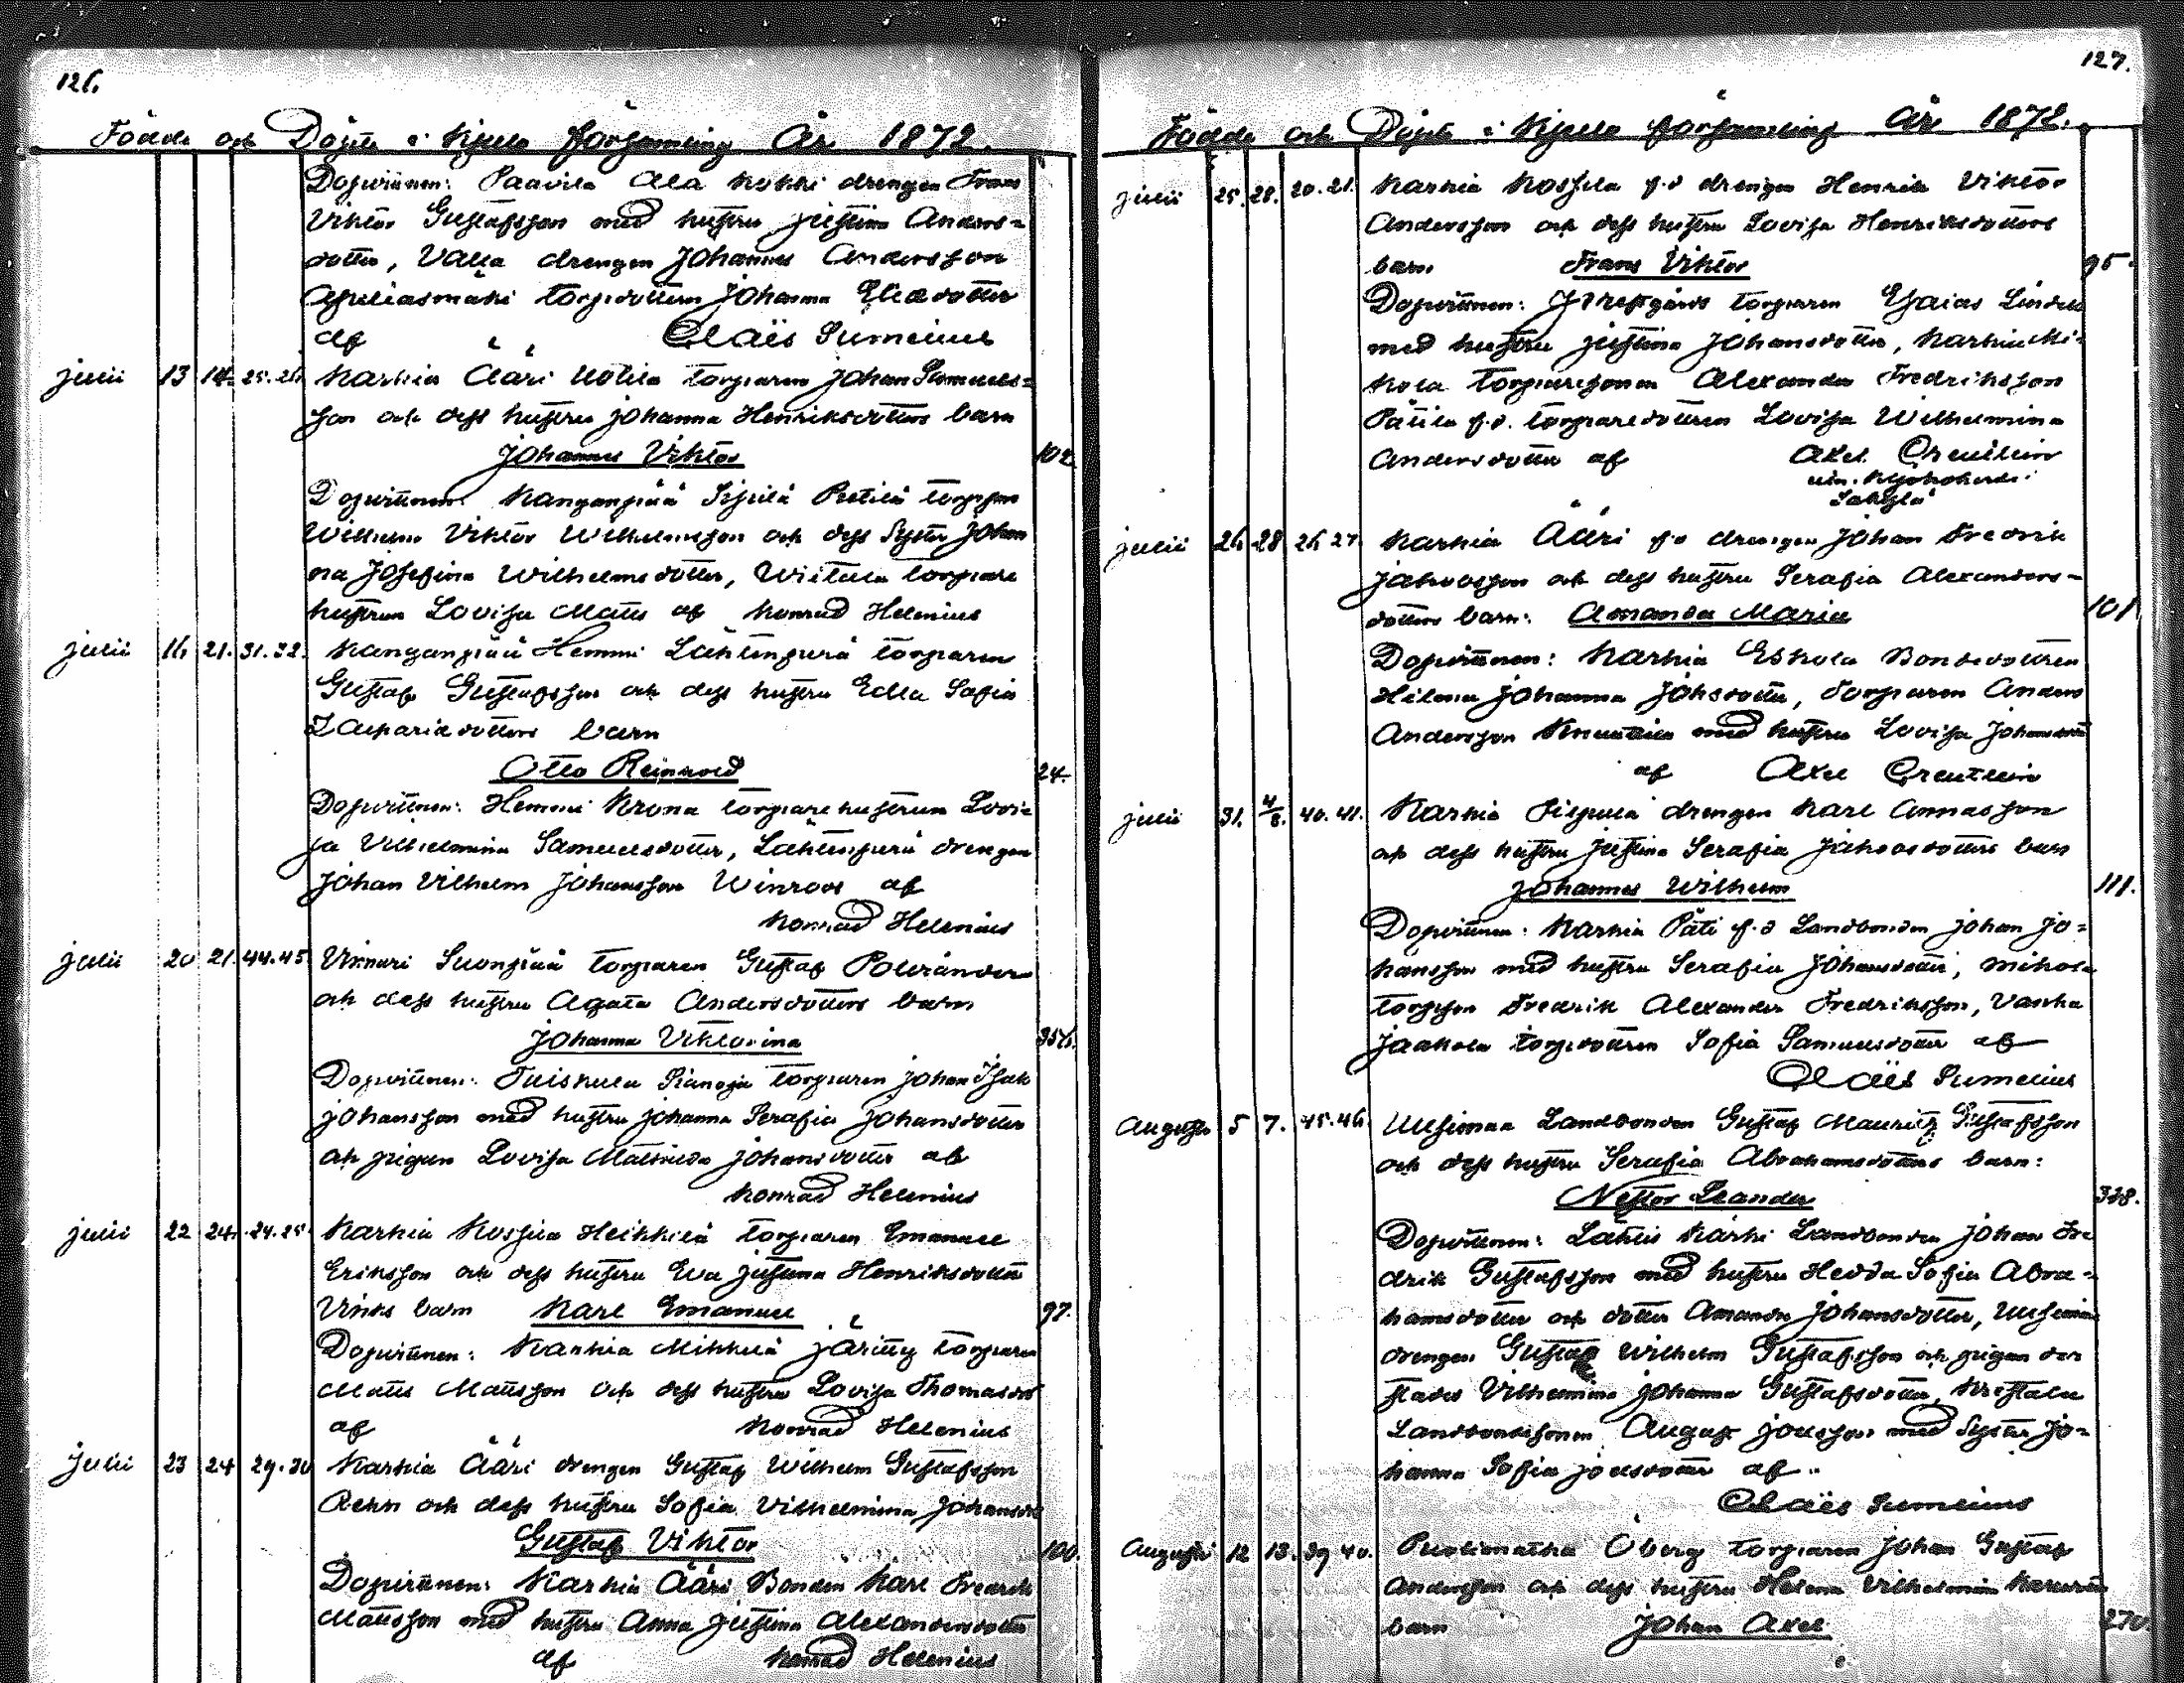 126.
Födde och Döpte i Kjulo församling År 1872.
Dopvittnen: Paavila Ala Kokki drengen Frans
Viktor Gustafsson med hustru Justina Anders-
dotter, Valla drengen Johannes Andersson
torpdottern Johanna Eliædotter
af Claës Sumelius
julii 13 14. 25.26. Karhia Ääri Uotila torparen Johan Samuels-
son och dess hustru Johanna Henriksdotters barn
Johannes Viktor 102
Dopvittnen: Kanganpää Sipilä Pertilä torpson
Wilhelm Viktor Wilhelmsson och dess Syster Johan
na Josefina Wilhelmsdotter, torpare
hustrun Lovisa Matts af Konrad Helenius
julii 16 21. 31.32. Kanganpää Hemmi Lähtenperä torparen
Gustaf Gustafsson och dess hustru Edla Sofia
barn
Otto Reinhold 24.
Dopvittnen: Hemmi Krona torparehustrun Lovi-
sa Vilhelmina Samuelsdotter, Lähtenperä drengen
Johan Vilhelm Johansson Winroos af
Konrad Helenius
julii 20 21. 44.45 Vinnari Suonpää torparen Gustaf Polviander
och dess hustru Agata Andersdotters barn
Johanna Viktorina
Dopvittnen: Tuiskula torparen Johan Isak
Johansson med hustru Johanna Serafia Johansdotter
och pigan Lovisa Mathilda Johansdotter af
Konrad Helenius
julii 22 24. 24.25. Karhia Kossila Heikkilä torparen Emanuel
Eriksson och dess hustru Eva Justina Henriksdotter
Vinks barn Karl Emanuel 97.
Dopvittnen: Karhia Mikkilä torparen
Matts Mattsson och dess hustru Lovisa Thomasdr
af Konrad Helenius
Julii 23 24 29.30 Karhia Ääri drengen Gustaf Wilhelm Gustafsson
Rehn och dess hustru Sofia Vilhelmina Johansdr
Gustaf Viktor 100.
Dopvittnen: Karhia Ääri Bonden Karl Fredrik
Mattsson med hustru Anna Justina Alexandersdotter
af Konrad Helenius
127.
Födde och Döpte i Kjulo församling År 1872.
julii 25. 28. 20.21. Karhia Kossila f.d drengen Henrik Viktor
Andersson och dess hustru Lovisa Henriksdotters
barn Frans Viktor 95.
Dopvittnen: torparen Esaias
med hustru Justina Johansdotter, Karhia Mi-
kola torparesonen Alexander Fredriksson
Pätilä f.d. torparedottren Lovisa Wilhelmina
Andersdotter af Axel Creutlein
Säkylä
julii 26 28 26 27. Karhia Ääri f.d drengen Johan Fredrik
Jakobsson och dess hustru Serafia Alexanders-
dotters barn: Amanda Maria 101
Dopvittnen: Karhia Eskola Bondedottren
Helena Johanna Johsdotter, torparen Anders
Andersson Knuutila med hustru Lovisa Johansdotter
af Axel Creutlein
julii 31. 4/8. 40.41. Karhia drengen Karl Annasson
och dess hustru Justina Serafia Jakobsdotters barn
Johannes Wilhelm 111.
Dopvittnen: Karhia Päti f.d Landbonden Johan Jo-
hansson med hustru Serafia Johansdotter, Mikola
torpson Fredrik Alexander Fredriksson, Vanha
Jaakola torpdottren Sofia Samuelsdotter af
Claës Sumelius
Augusti 5 7. 45.46 Uusimaa Landbonden Gustaf Mauritz Gustafsson
och dess hustru Serafia Abrahamsdotters barn:
Nestor Leander 328.
Dopvittnen: Lähtis Kärki Landbonden Johan Fre
drik Gustafsson med hustru Hedda Sofia Abra-
hamsdotter och dotter Amanda Johansdotter, Uusimaa
drengen Gustaf Wilhelm Gustafsson och pigan der
städes Vilhelmina Johanna Gustafsdotter, Knistala
Landbondesonen August Joelsson med Syster Jo-
hanna Sofia Joelsdotter af.
Claës Sumelius
Augusti 12 13. 39 40. Puolimatka Öberg torparen Johan Gustaf
Andersson och dess hustru Helena Vilhelmina
barn Johan Axel 270.